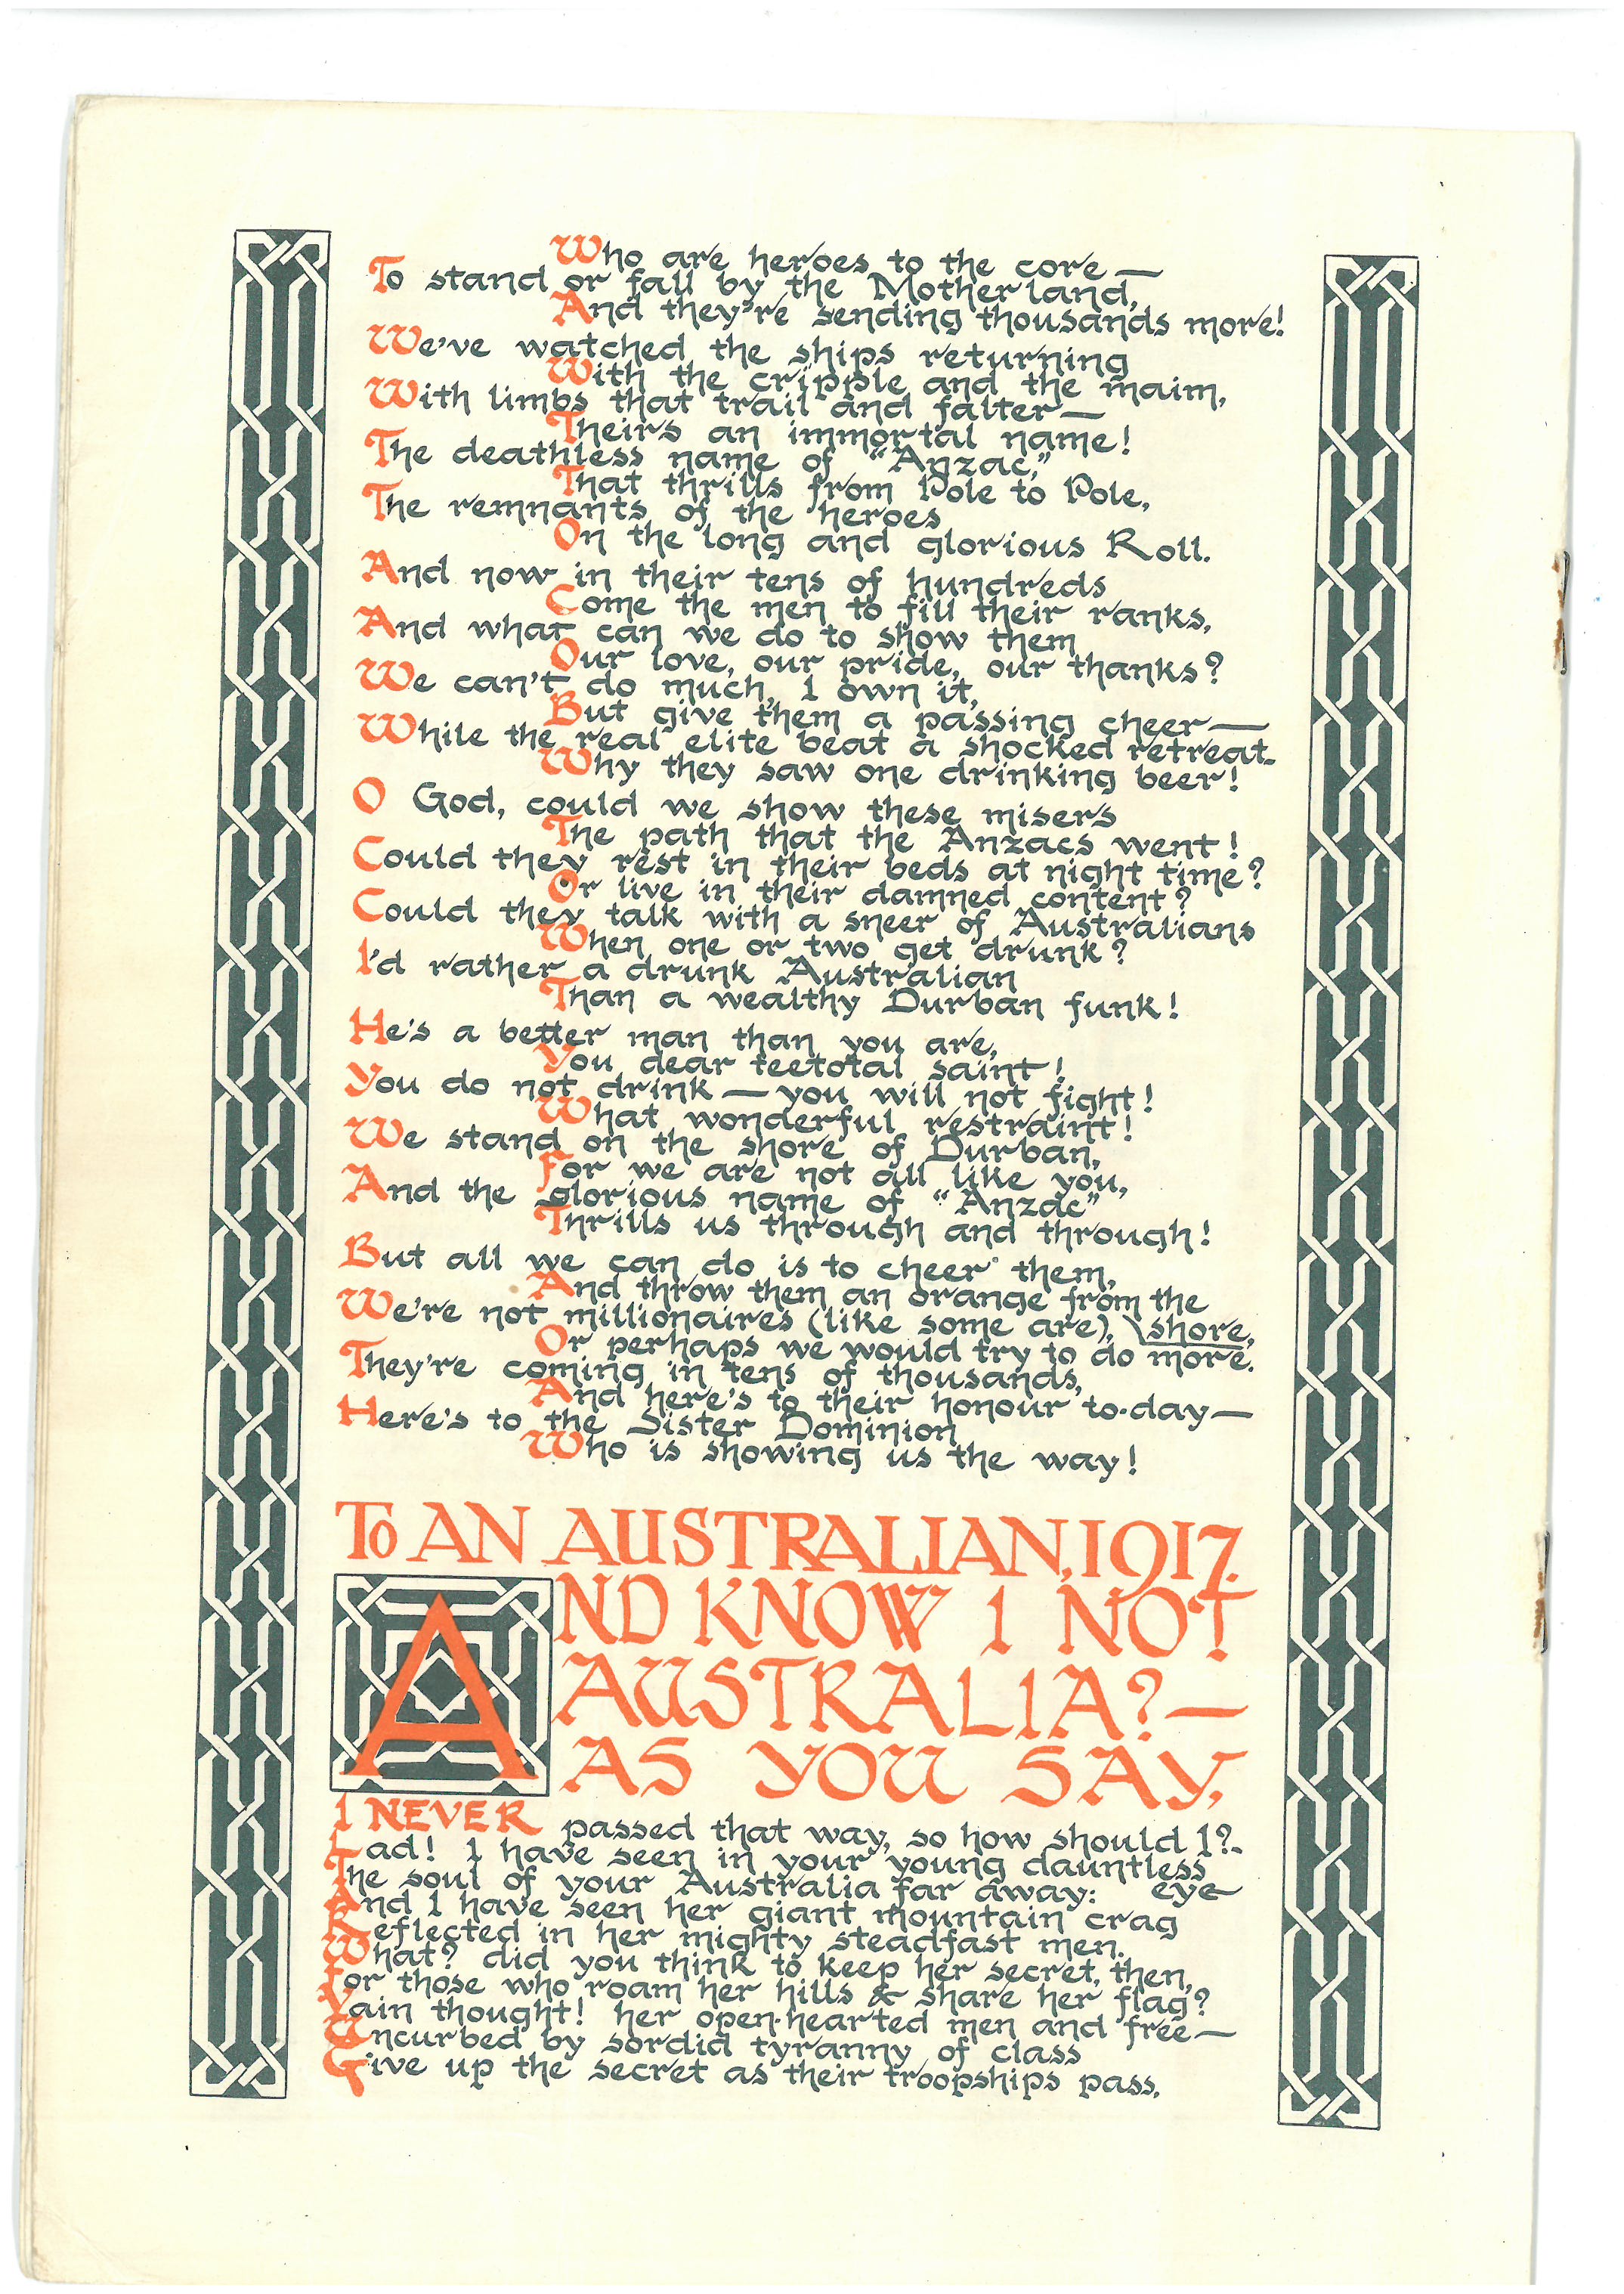 Who are heroes to the core —
To stand or fall by the Motherland,
And they're sending thousands more!
We've watched the ships returning
With the cripple and the maim,
With limbs that trail and falter —
Theirs an immortal name!
The deathless name of "Anzac,"
That thrills from Pole to Pole,
The remnants of the heroes
On the long and glorious Roll.
And now in their tens of hundreds
Come the men to fill their ranks,
And what can we do to show them
Our love, our pride, our thanks?
We can't do much, I own it,
But give them a passing cheer —
While the real elite beat a shocked retreat-
Why they saw one drinking beer!
O God, could we show these misers
The path that the Anzacs went!
Could they rest in their beds at night time?
Or live in their damned content?
Could they talk with a sneer of Australians
When one or two get drunk?
I'd rather a drunk Australian
Than a wealthy Durban funk!
He's a better man than you are,
You dear teetotal saint!
You do not drink — you will not fight!
What wonderful restraint!
We stand on the shore of Durban,
For we are not all like you,
And the glorious name of "Anzac"
Thrills us through and through!
But all we can do is to cheer them,
And throw them an orange from the
We're not millionaires (like some are), \shore,
Or perhaps we would try to do more.
They're coming in tens of thousands,
And here's to their honour to-day —
Here's to the Sister Dominion
Who is showing us the way!
To AN AUSTRALIAN, 1917.
AND KNOW I NOT
AUSTRALIA? —
AS YOU SAY,
I NEVER passed that way, so how should I?-
Lad! I have seen in your young dauntless
The soul of your Australia far away: eye
And I have seen her giant mountain crag
Reflected in her mighty steadfast men.
What? did you think to keep her secret, then,
For those who roam her hills & share her flag?
Vain thought! her open-hearted men and free —
Uncurbed by sordid tyranny of class
Give up the secret as their troopships pass.